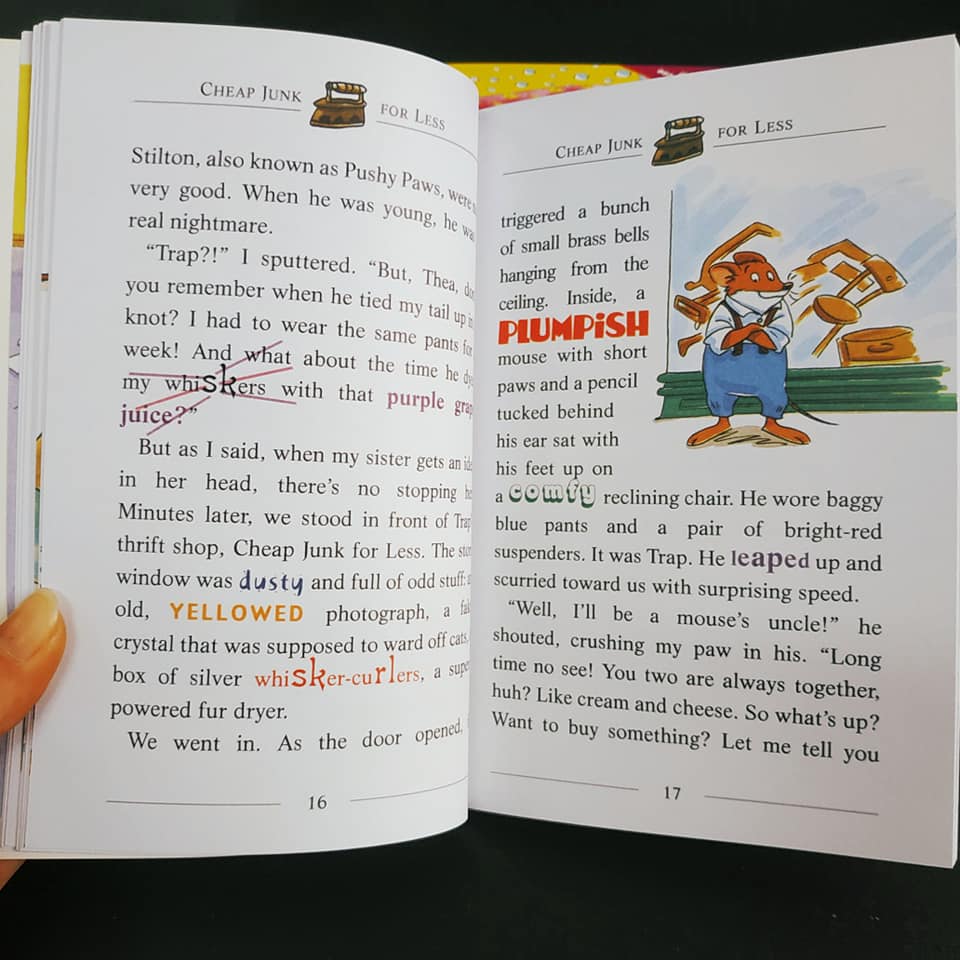 CHEAP JUNK FOR LESS
Stilton, also known as Pushy Paws, were
very good. When he was young, he was
real nightmare.
“Trap?!” I sputtered. “But, Thea,
you remember when he tied my tail up in
knot? I had to wear the same pants for
week! And what about the time he
my whiskers with that purple
juice?”
But as I said, when my sister gets an
in her head, there’s no stopping
Minutes later, we stood in front of
thrift shop, Cheap Junk for Less. The
window was dusty and full of odd stuff:
old, YELLOWED photograph, a
crystal that was supposed to ward off cats,
box of silver whisker-curlers, a
powered fur dryer.
We went in. As the door opened,
16
CHEAP JUNK FOR LESS
triggered a bunch
of small brass bells
hanging from the
ceiling. Inside, a
PLUMPiSH
mouse with short
paws and a pencil
tucked behind
his ear sat with
his feet up on
a comfy reclining chair. He wore baggy
blue pants and a pair of bright-red
suspenders. It was Trap. He leaped up and
scurried toward us with surprising speed.
“Well, I’ll be a mouse’s uncle!” he
shouted, crushing my paw in his. “Long
time no see! You two are always together,
huh? Like cream and cheese. So what’s up?
Want to buy something? Let me tell you
17